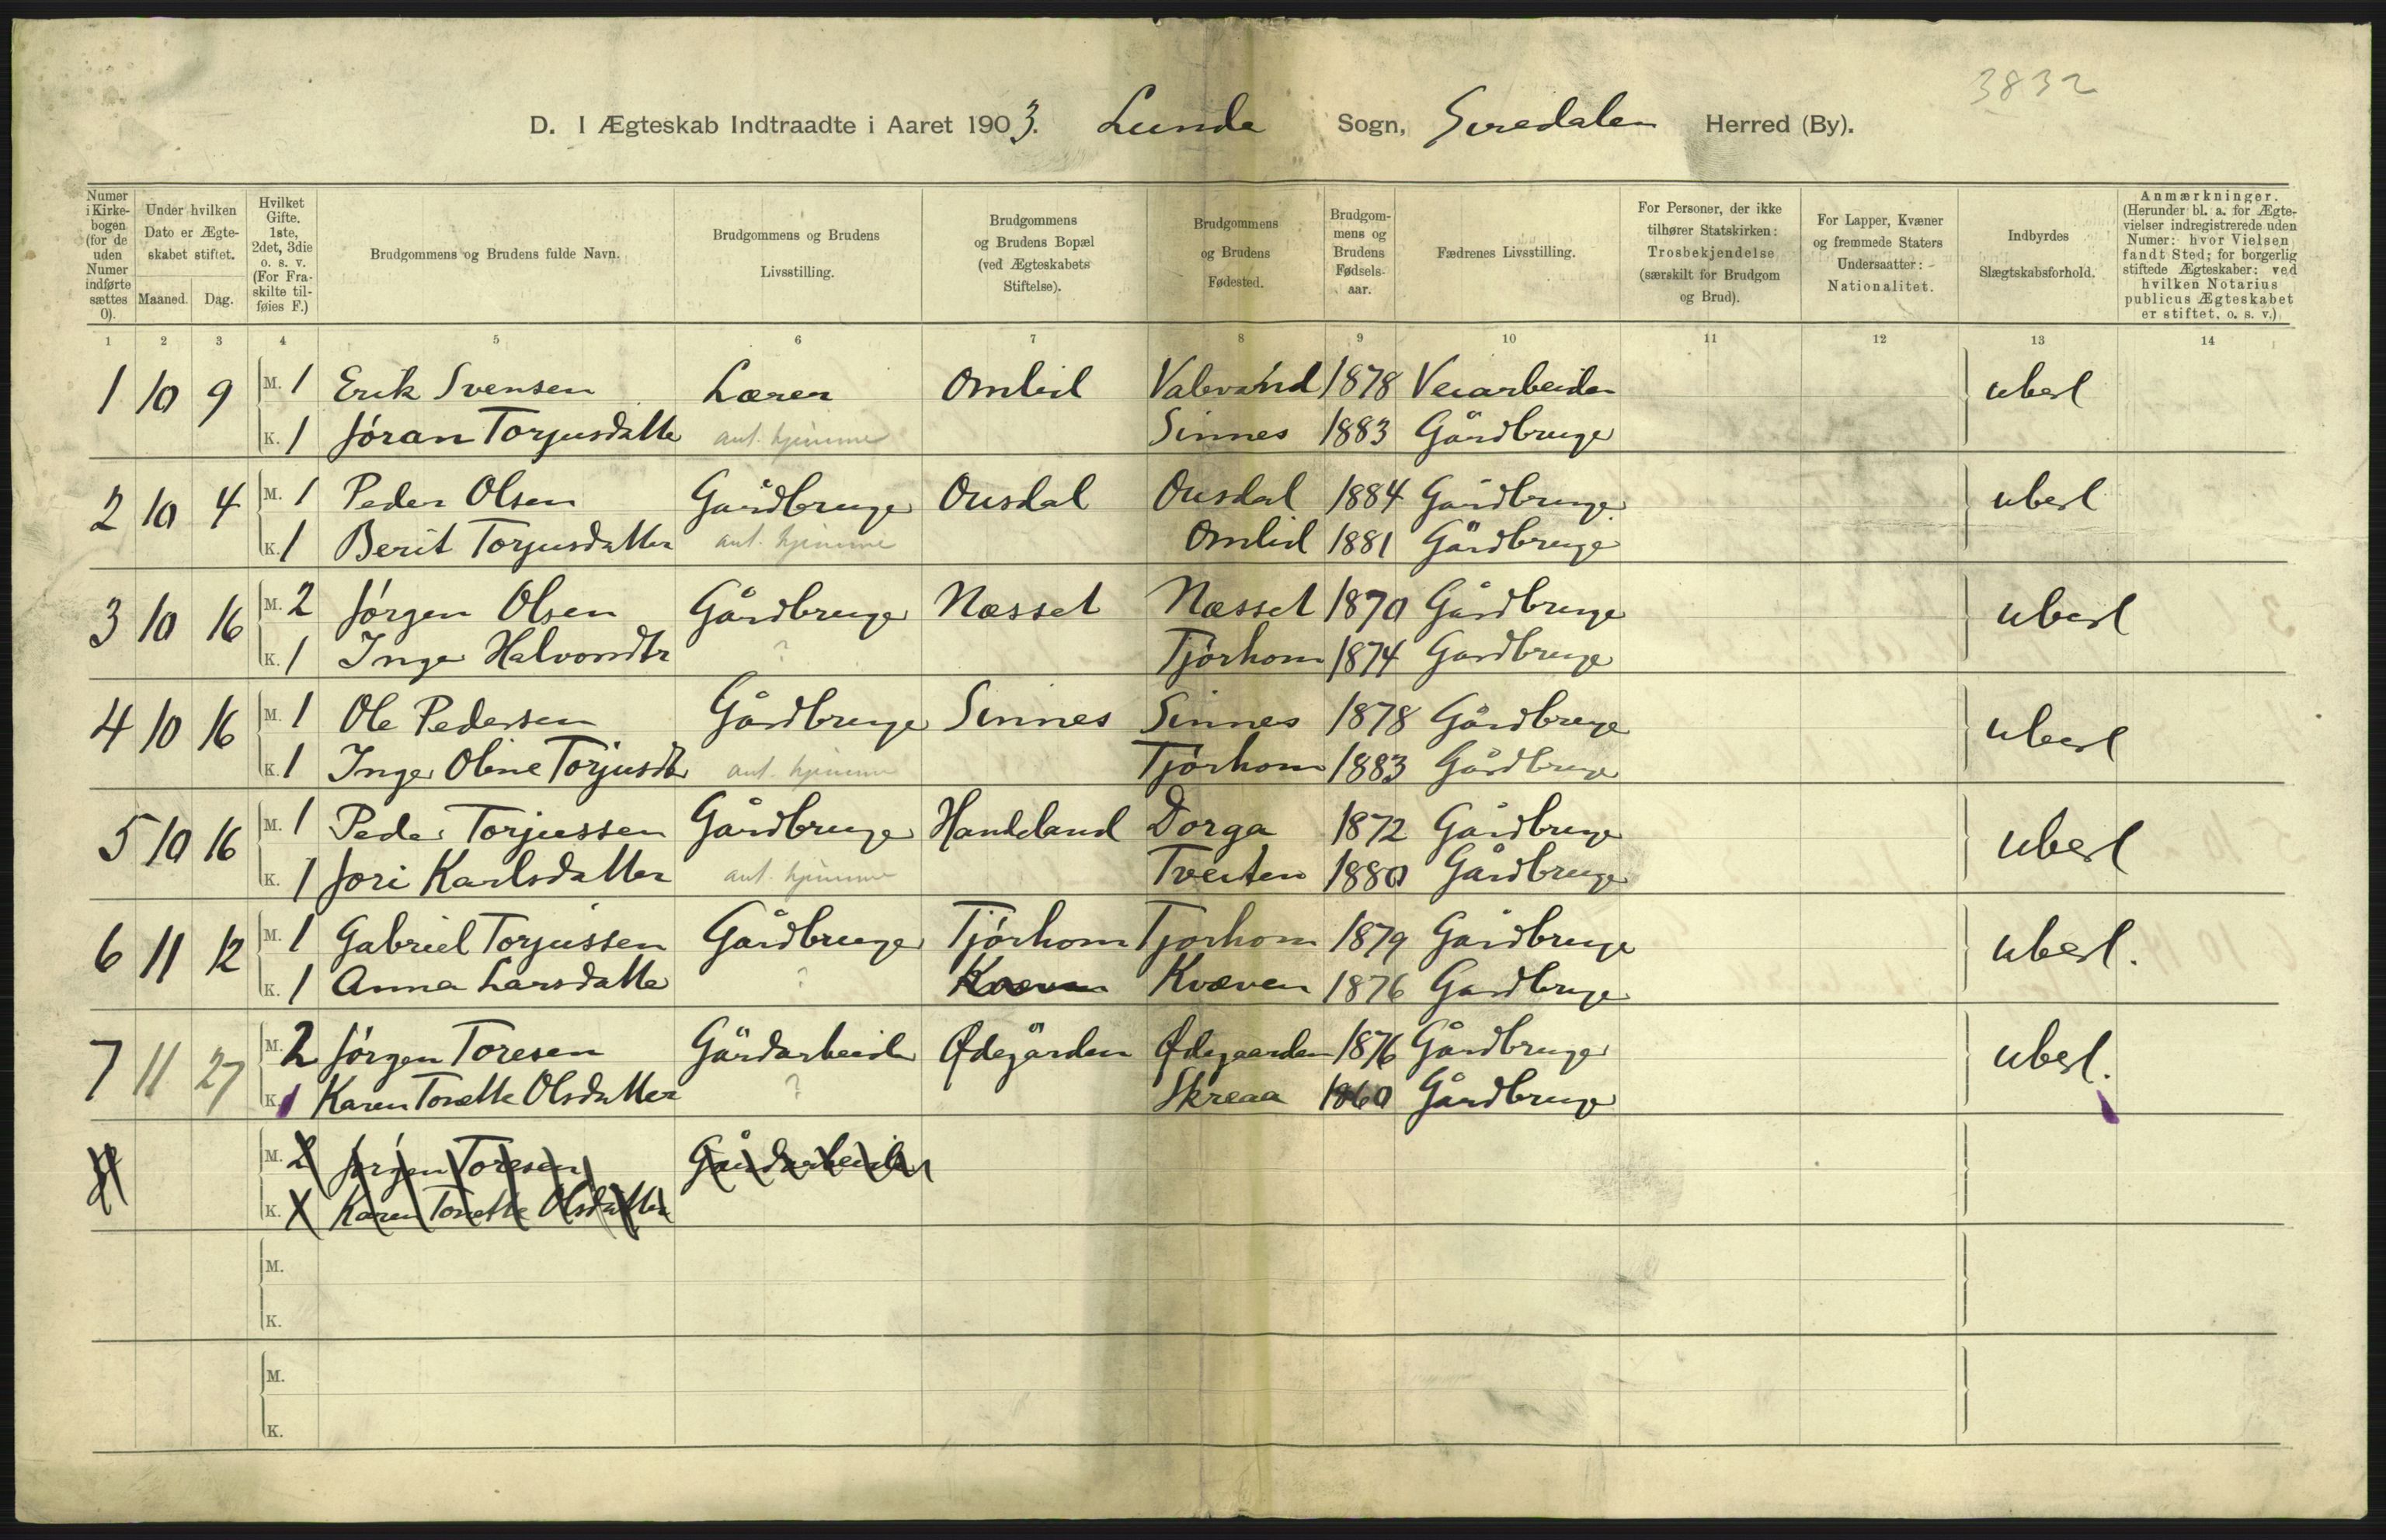 3832
D. I Ægteskab Indtraadte i Aaret 1903. Lunde Sogn, Siredalen Herred (By).
Numer i Kirkebogen (for de uden Numer indførte sættes 0).
Under hvilken Dato er Ægteskabet stiftet.
Maaned. Dag.
Hvilket Gifte. 1ste, 2det, 3die o. s. v. (For Fraskilte tilføies F.)
Brudgommens og Brudens fulde Navn.
Brudgommens og Brudens Livsstilling.
Brudgommens og Brudens Bopæl (ved Ægteskabets Stiftelse).
Brudgommens og Brudens Fødested.
Brudgommens og Brudens Fødselsaar.
Fædrenes Livsstilling.
For Personer, der ikke tilhører Statskirken: Trosbekjendelse (særskilt for Brudgom og Brud).
For Lapper, Kvæner og fremmede Staters Undersaatter: Nationalitet.
Indbyrdes Slægtskabsforhold.
Anmærkninger. (Herunder bl. a. for Ægtevielser indregistrerede uden Numer: hvor Vielsen fandt Sted; for borgerlig stiftede Ægteskaber: ved hvilken Notarius publicus Ægteskabet er stiftet, o. s. v.)
1 2 3 4 5 6 7 8 9 10 11 12 13 14
1 10 9 M. 1 Erik Svensen Lærer Omlid Valevand 1878 Veiarbeider ubesl
K. 1 Jóran Torjusdatte ant. hjemme Sinnes 1883 Gårdbruge
2 10 4 M. 1 Peder Olsen Gårdbruger Ousdal Ousdal 1884 Gårdbruger ubesl
K. 1 Berit Torjusdatter ant. hjemme Omlid 1881 Gårdbruge
3 10 16 M. 2 Jórgen Olsen Gårdbruger Næsset Næsset 1870 Gårdbruge ubesl
K. 1 Inger Halvorsdtr ? Tjórhom 1874 Gardbruge
4 10 16 M. 1 Ole Pedersen Gårdbruger Sinnes Sinnes 1878 Gårdbruge ubesl
K. 1 Inger Oline Torjusdtr ant. hjemme Tjórhom 1883 Gårdbruge
5 10 16 M. 1 Peder Torjussen Gårdbruger Haudeland Dorga 1872 Gårdbruge ubesl
K. 1 Jori Karlsdatter ant. hjemme Tveiten 1880 Gårdbruge
6 11 12 M. 1 Gabriel Torjussen Gårdbruger Tjórhom Tjorhom 1879 Gårdbruge ubesl.
K. 1 Anna Larsdatte ? Kvæven Kvæven 1876 Gardbruge
7 11 27 M. 2 Jórgen Toresen Gårdarbeider Ødegården Ødegaarden 1876 Gårdbruger ubesl.
K. 1 Karen Tonette Olsdatter ? Skreaa 1860 Gårdbruge
8 M. 2 Jórgen Toresen Gårdarbeider
K. 1 Karen Tonette Olsdatter
M.
K.
M.
K.